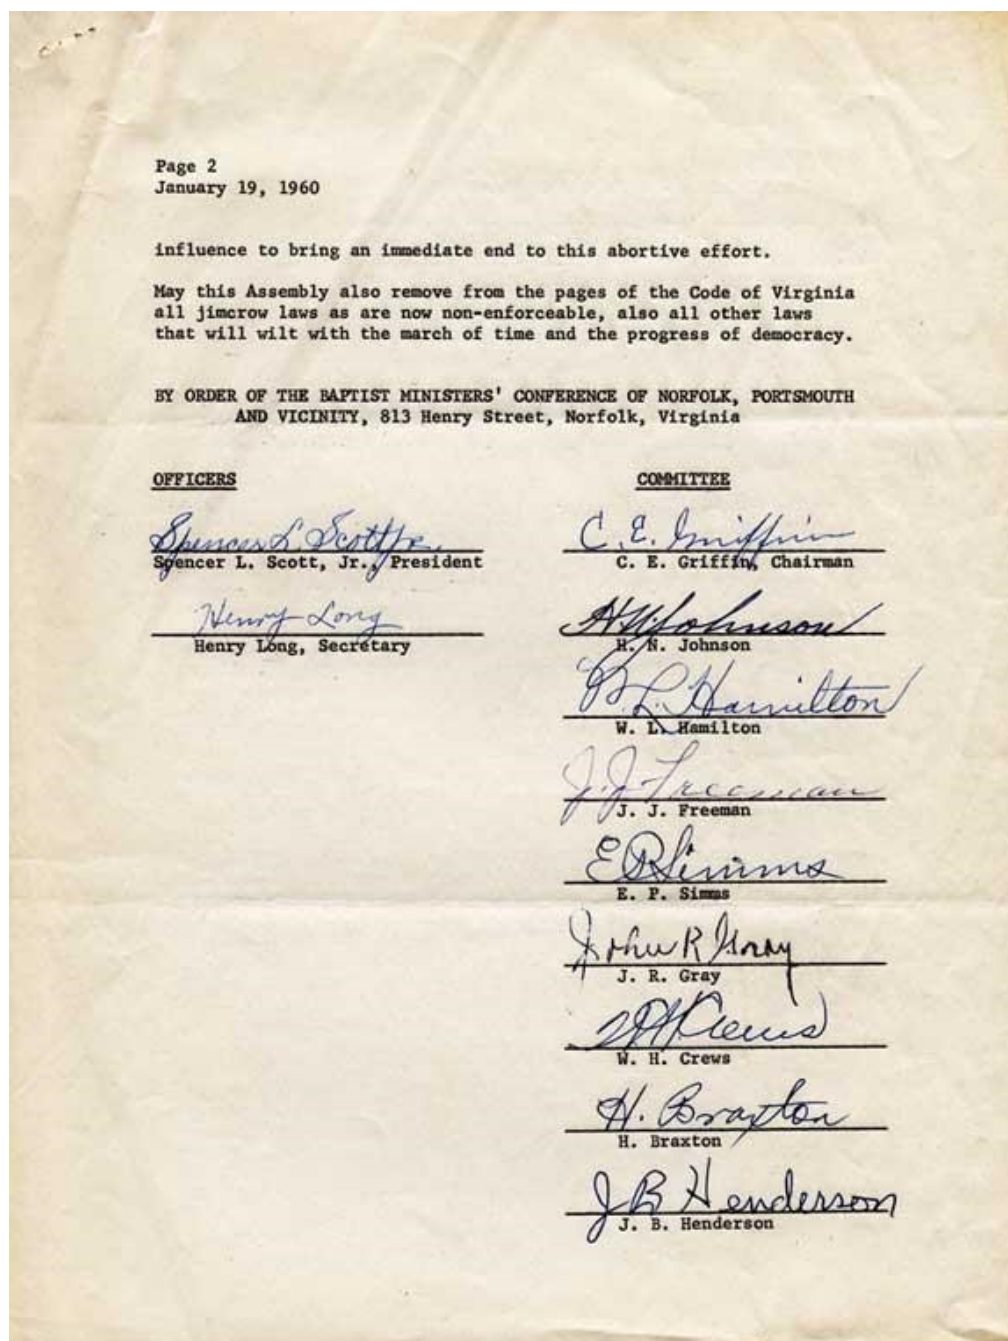 Page 2
January 19, 1960
influence to bring an immediate end to this abortive effort.
May this Assembly also remove from the pages of the Code of Virginia
all jimcrow laws as are now non-enforceable, also all other laws
that will wilt with the march of time and the progress of democracy.
BY ORDER OF THE BAPTIST MINISTERS' CONFERENCE OF NORFOLK, PORTSMOUTH
AND VICINITY, 813 Henry Street, Norfolk, Virginia
OFFICERS
Spencer L. Scott Jr.
Spencer L. Scott, Jr., President
Henry Long
Henry Long, Secretary
COMMITTEE
C. E. Griffin
C. E. Griffin, Chairman
H. N. Johnson
H. N. Johnson
W. L. Hamilton
W. L. Hamilton
J. J. Freeman
J. J. Freeman
E P Simms
E. P. Simms
John R Gray
J. R. Gray
W H Crews
W. H. Crews
H. Braxton
H. Braxton
J B Henderson
J. B. Henderson